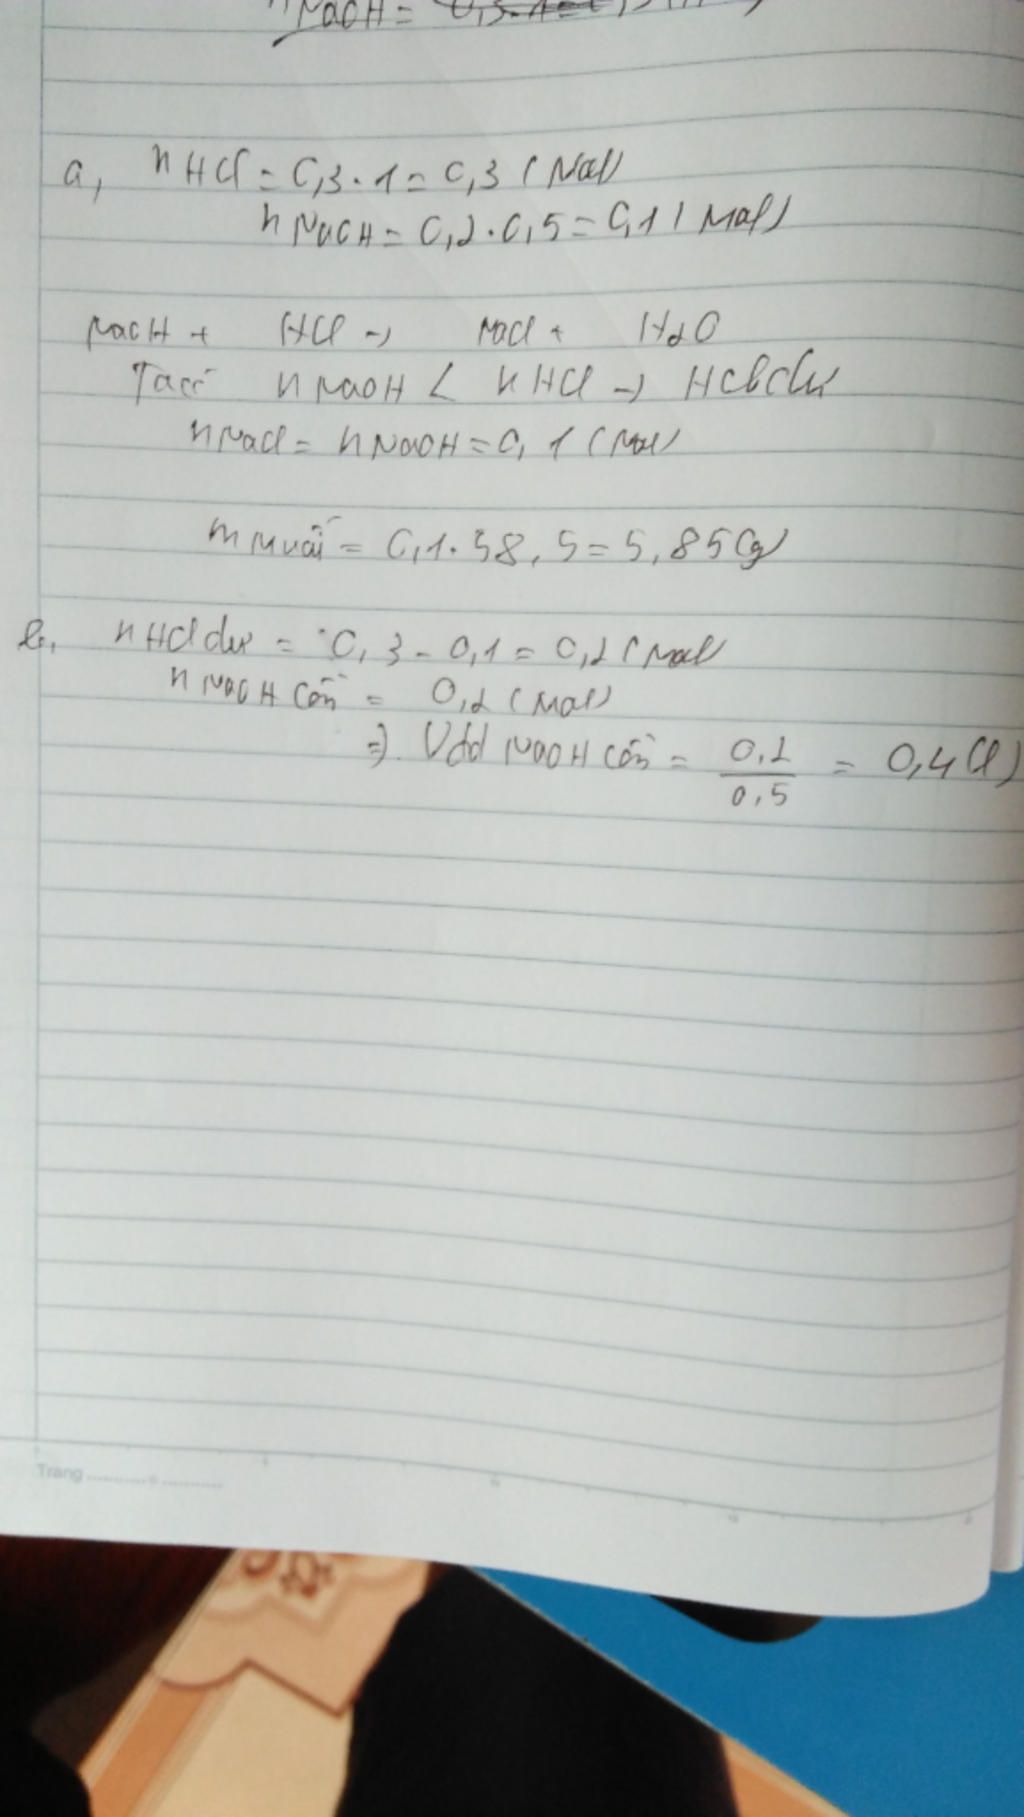 nNaOH =
a, nHCl = 0,3 . 1 = 0,3 (Mol)
nNaOH = 0,2 . 0,5 = 0,1 (Mol)
NaOH + HCl → NaCl + H2O
Ta có nNaOH < nHCl → HCl dư
nNaCl = nNaOH = 0,1 (Mol)
m Muối = 0,1 . 58,5 = 5,85 (g)
b, nHCl dư = 0,3 - 0,1 = 0,2 (Mol)
nNaOH cần = 0,2 (Mol)
=> Vdd NaOH cần = 0,2 / 0,5 = 0,4 (l)
Trang